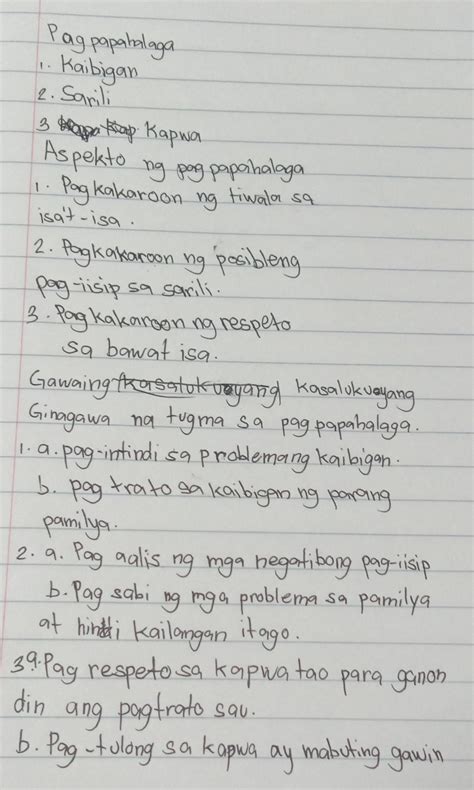 Pagpapahalaga
1. Kaibigan
2. Sarili
3 Kapwa
Aspekto ng pagpapahalaga
1. Pagkakaroon ng tiwala sa
isa't-isa.
2. Pagkakaroon ng posibleng
pag-iisip sa sarili.
3. Pagkakaroon ng respeto
sa bawat isa.
Gawaing kasalukuyang kasalukuyang
Ginagawa na tugma sa pagpapahalaga.
1. a. pag-intindi sa problemang kaibigan.
b. pag trato sa kaibigan ng parang
pamilya.
2. a. Pag aalis ng mga negatibong pag-iisip
b. Pag sabi ng mga problema sa pamilya
at hindi kailangan itago.
3a. Pag respeto sa kapwa tao para ganon
din ang pagtrato sau.
b. Pag-tulong sa kapwa ay mabuting gawin